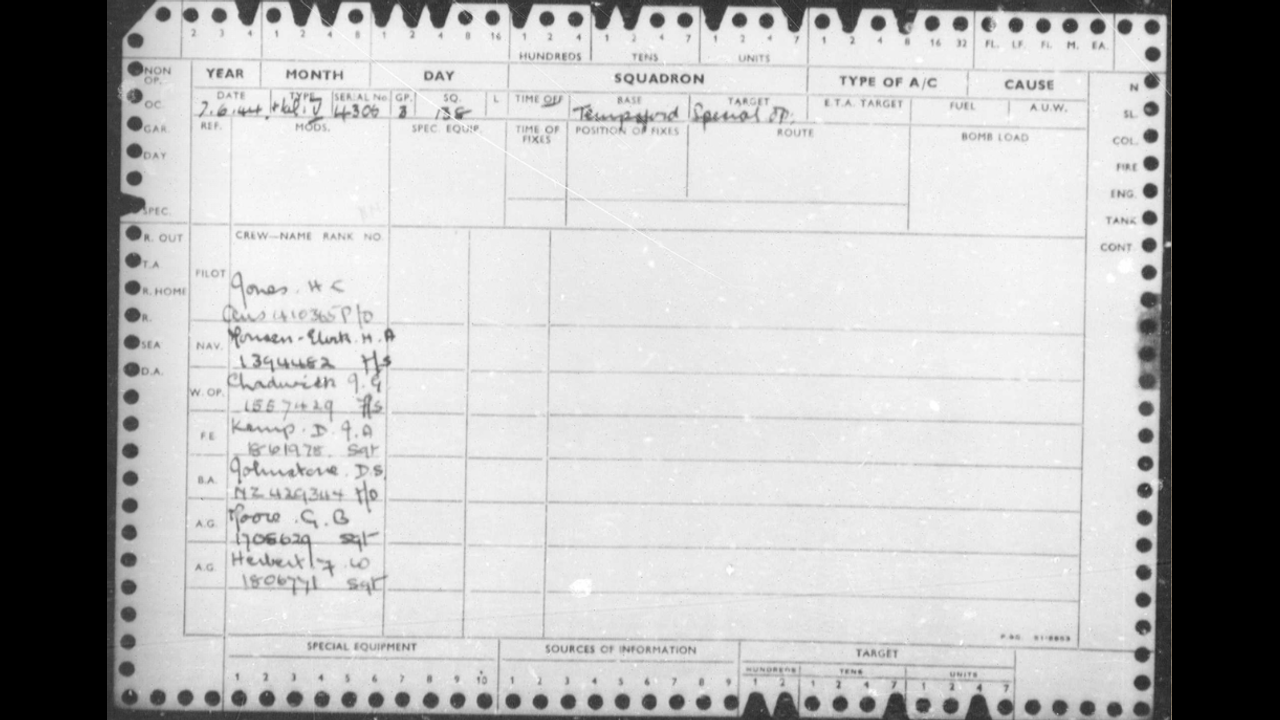 2 3 4 1 2 4 8 1 2 4 8 16 1 2 4 7 1 2 4 7 1 2 4 7 1 2 4 8 16 32 FL. LF. FI. M. EA.
HUNDREDS TENS UNITS
NON OP. YEAR MONTH DAY SQUADRON TYPE OF A/C CAUSE N
DATE TYPE SERIAL No. GP. SQ. L TIME OFF BASE TARGET E.T.A. TARGET FUEL A.U.W.
OC. 7.6.44. V 4306 3 138 Tempsford Special OP. SL.
GAR. REF. MODS. SPEC. EQUIP. TIME OF FIXES POSITION OF FIXES ROUTE BOMB LOAD COL.
DAY FIRE
ENG.
SPEC. TANK
R. OUT CREW—NAME RANK NO. CONT.
T.A.
PILOT Jones. H C
R. HOME
R. Aus 410365 P/O
SEA NAV. H. A
1394482 F/S
D.A. Chadwick
W. OP. 1557429 F/S
F.E. Kemp. D. J. A
1861978. Sgt
B.A. Johnstone. D. S.
NZ 429344 F/O
A.G. Moore. G. B
1705629 Sgt
A.G. Herbert F W
1806771 Sgt
SPECIAL EQUIPMENT SOURCES OF INFORMATION TARGET
HUNDREDS TENS UNITS
1 2 3 4 5 6 7 8 9 10 1 2 3 4 5 6 7 8 9 1 2 1 2 4 7 1 2 4 7